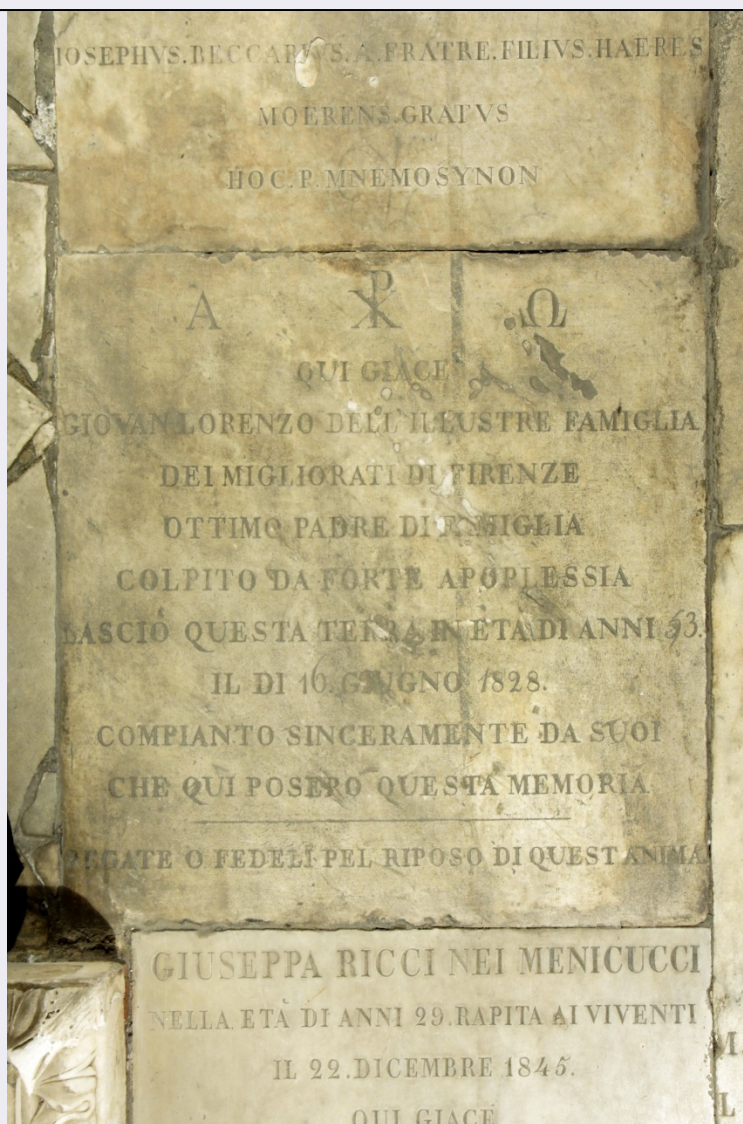 IOSEPHVS.BECCARIVS.A.FRATRE.FILIVS.HAERES
MOERENS.GRATVS
HOC.P.MNEMOSYNON
Α ☧ Ω
QUI GIACE
GIOVAN LORENZO DELL'ILLUSTRE FAMIGLIA
DEI MIGLIORATI DI FIRENZE
OTTIMO PADRE DI FAMIGLIA
COLPITO DA FORTE APOPLESSIA
LASCIÒ QUESTA TERRA IN ETÀ DI ANNI
IL DI 16. GIUGNO 1828.
COMPIANTO SINCERAMENTE DA SUOI
CHE QUI POSERO QUESTA MEMORIA
PREGATE O FEDELI PEL RIPOSO DI QUEST ANIMA
GIUSEPPA RICCI NEI MENICUCCI
NELLA ETÀ DI ANNI 29. RAPITA AI VIVENTI
IL 22.DICEMBRE 1845.
QUI GIACE
M
L